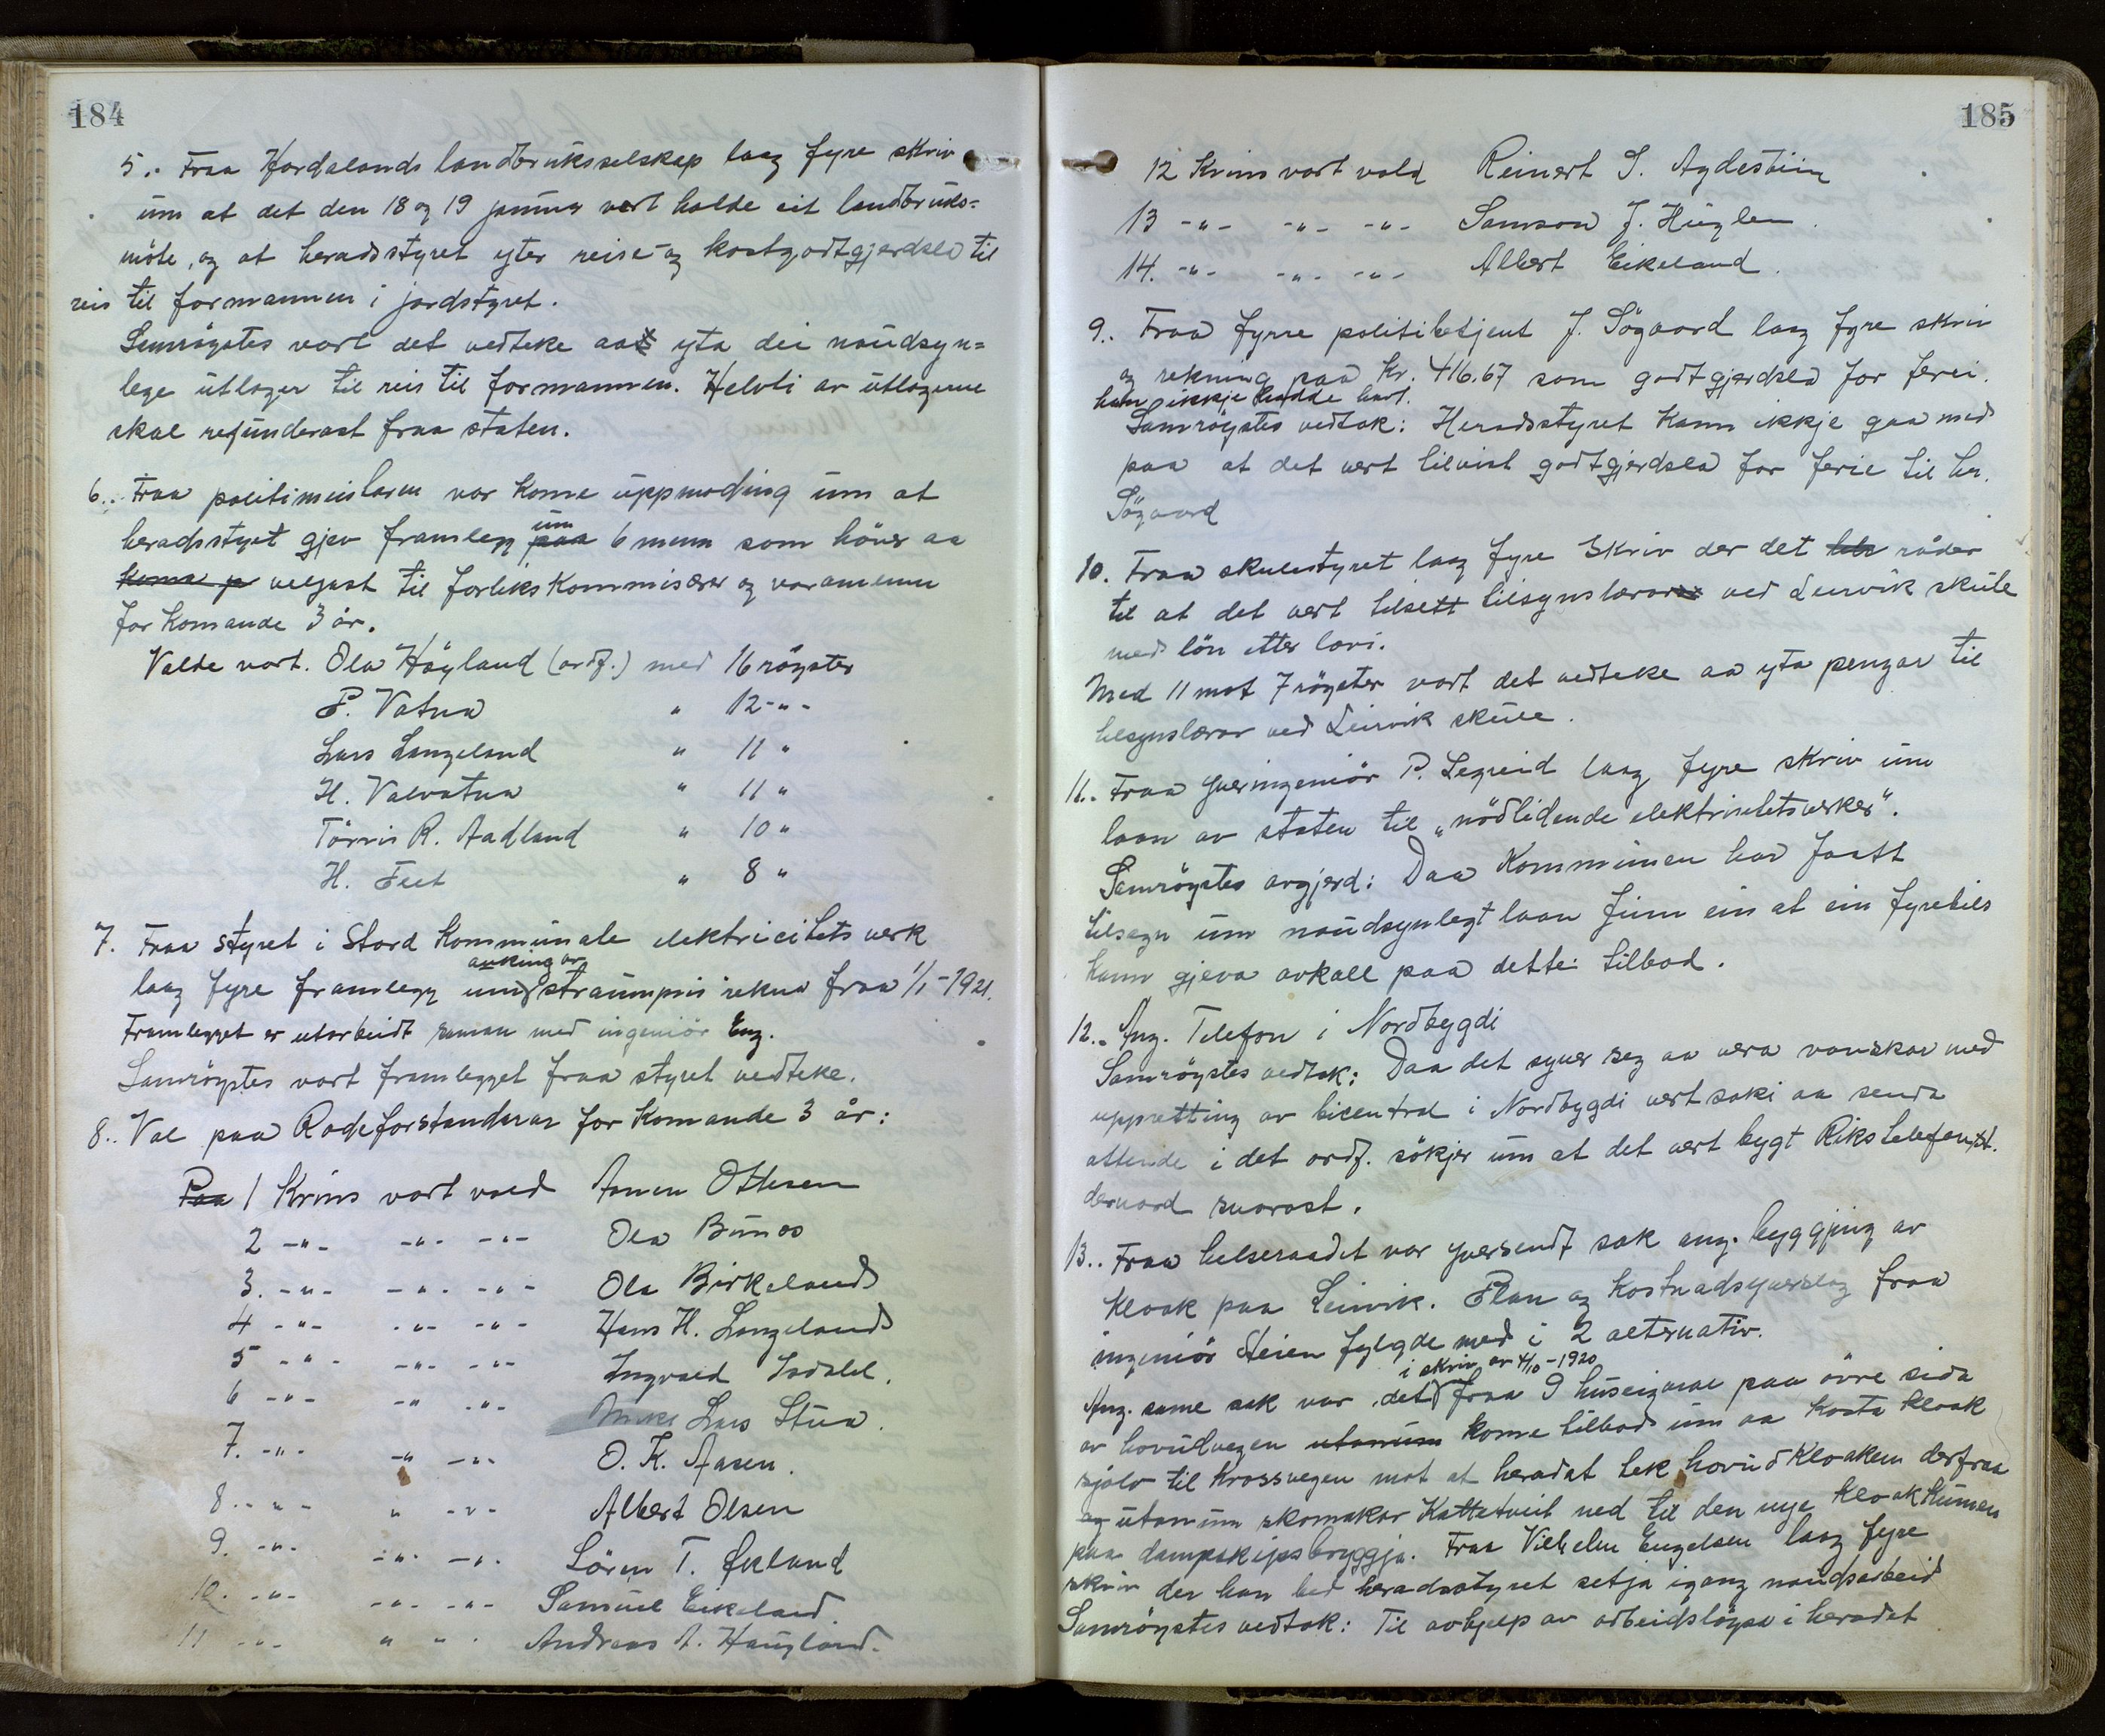 184
5.. Fraa Hordalands landbruksselskap laag fyre skriv
um at det den 18 og 19 januar vert halde eit landbruks=
möte, og at heradsstyret yter reise- og kostgodtgjerdsla til
reis til formannen i jordstyret.
Samröystes vart det vedteke aa yta dei naudsyn=
lege utlagor til reis til formannen. Helvti av utlagerne
skal refunderast fraa staten.
6.. Fraa politimeistaren var kome uppmoding um at
heradsstyret gjev framlegg um paa 6 menn som höver aa
koma p veljast til forlikskommisærer og varamenn
for komande 3 år.
Valde vart. Ola Höyland (ordf.) med 16 röyster
P. Vatna " 12 -"-
Lars Langeland " 11 "
H. Valvatna " 11 "
Törris R. Aadland " 10 "
H. Feet " 8 "
7. Fraa styret i Stord Kommunale elektricitetsverk
laag fyre framlegg um auking av straumpris rekna fraa 1/1-1921.
Framlegget er utarbeidt saman med ingeniör Eng.
Samröystes vart framlegget fraa styret vedteke.
8.. Val paa Rodeforstandarar for komande 3 år:
Paa 1 Krins vart vald Annen Ottesen
2 -"- -"- -"- Ola Bunes
3. -"- -"- -"- Ola Birkeland
4 -"- -"- -"- Hans H. Langeland
5 -"- -"- -"- Ingvald Isdahl.
6 -"- -"- -"- Lars Stua.
7. -"- -"- -"- O. K. Aasen.
8.. -"- " -"- Albert Olsen
9. -"- -"- -"- Sören T. Økland
10. -"- -"- -"- Samuel Eikeland.
11 -"- " " Andreas A. Haugland.
185
12 Krins vart vald Reinert S. Agdestein
13 -"- -"- -"- Samson J. Huglen.
14. -"- -"- -"- Albert Eikeland.
9.. Fraa fyrre politibetjent J. Sögaard laag fyre skriv
og rekning paa Kr. 416.67 som godtgjerdsla for ferie.
han ikkje hadde havt.
Samröystes vedtak: Heradsstyret kann ikkje gaa med
paa at det vert tilvist godtgjerdsla for ferie til hr.
Sögaard
10. Fraa skulestyret laag fyre skriv der det råder
til at det vert tilsett tilsynslærar ved Leirvik skule
med lön etter lovi.
Med 11 mot 7 röyster vart det vedteke aa yta pengar til
tilsynslærar ved Leirvik skule.
11.. Fraa yveringeniör P. Legreid laag fyre skriv um
laan av staten til "nödlidende elektrisitetsverker".
Samröystes avgjerd: Daa Kommunen har faatt
tilsagn um naudsynlegt laan finn ein at ein fyrebils
kann gjeva avkall paa dette tilbod.
12.. Ang. Telefon i Nordbygdi
Samröystes vedtak: Daa det syner seg aa vera vanskar med
uppretting av bicentral i Nordbygdi vert saki aa senda
attende i det ordf. sökjer um at det vert bygt Rikstelefonst.
dernord snarast.
13.. Fraa helseraadet var yversendt sak ang. byggjing av
kloak paa Leirvik. Plan og kostnadsyverslag fraa
ingeniör Steien fylgde med i 2 alternativ.
i skriv av 4/10-1920
Ang. same sak var det fraa 9 huseigarar paa övre sida
av hovudvegen utanum kome tilbod um aa kosta kloak
sjölv til Krossvegen mot at heradet tek hovudkloaken derfraa
og utanum skomakar Kattatveit ned til den nye kloakkumen
paa dampskipsbryggja. Fraa Vilhelm Engelsen laag fyre
skriv der han bed heradsstyret setja igang naudsarbeid
Samröystes vedtak: Til avhjelp av arbeidslöysa i heradet